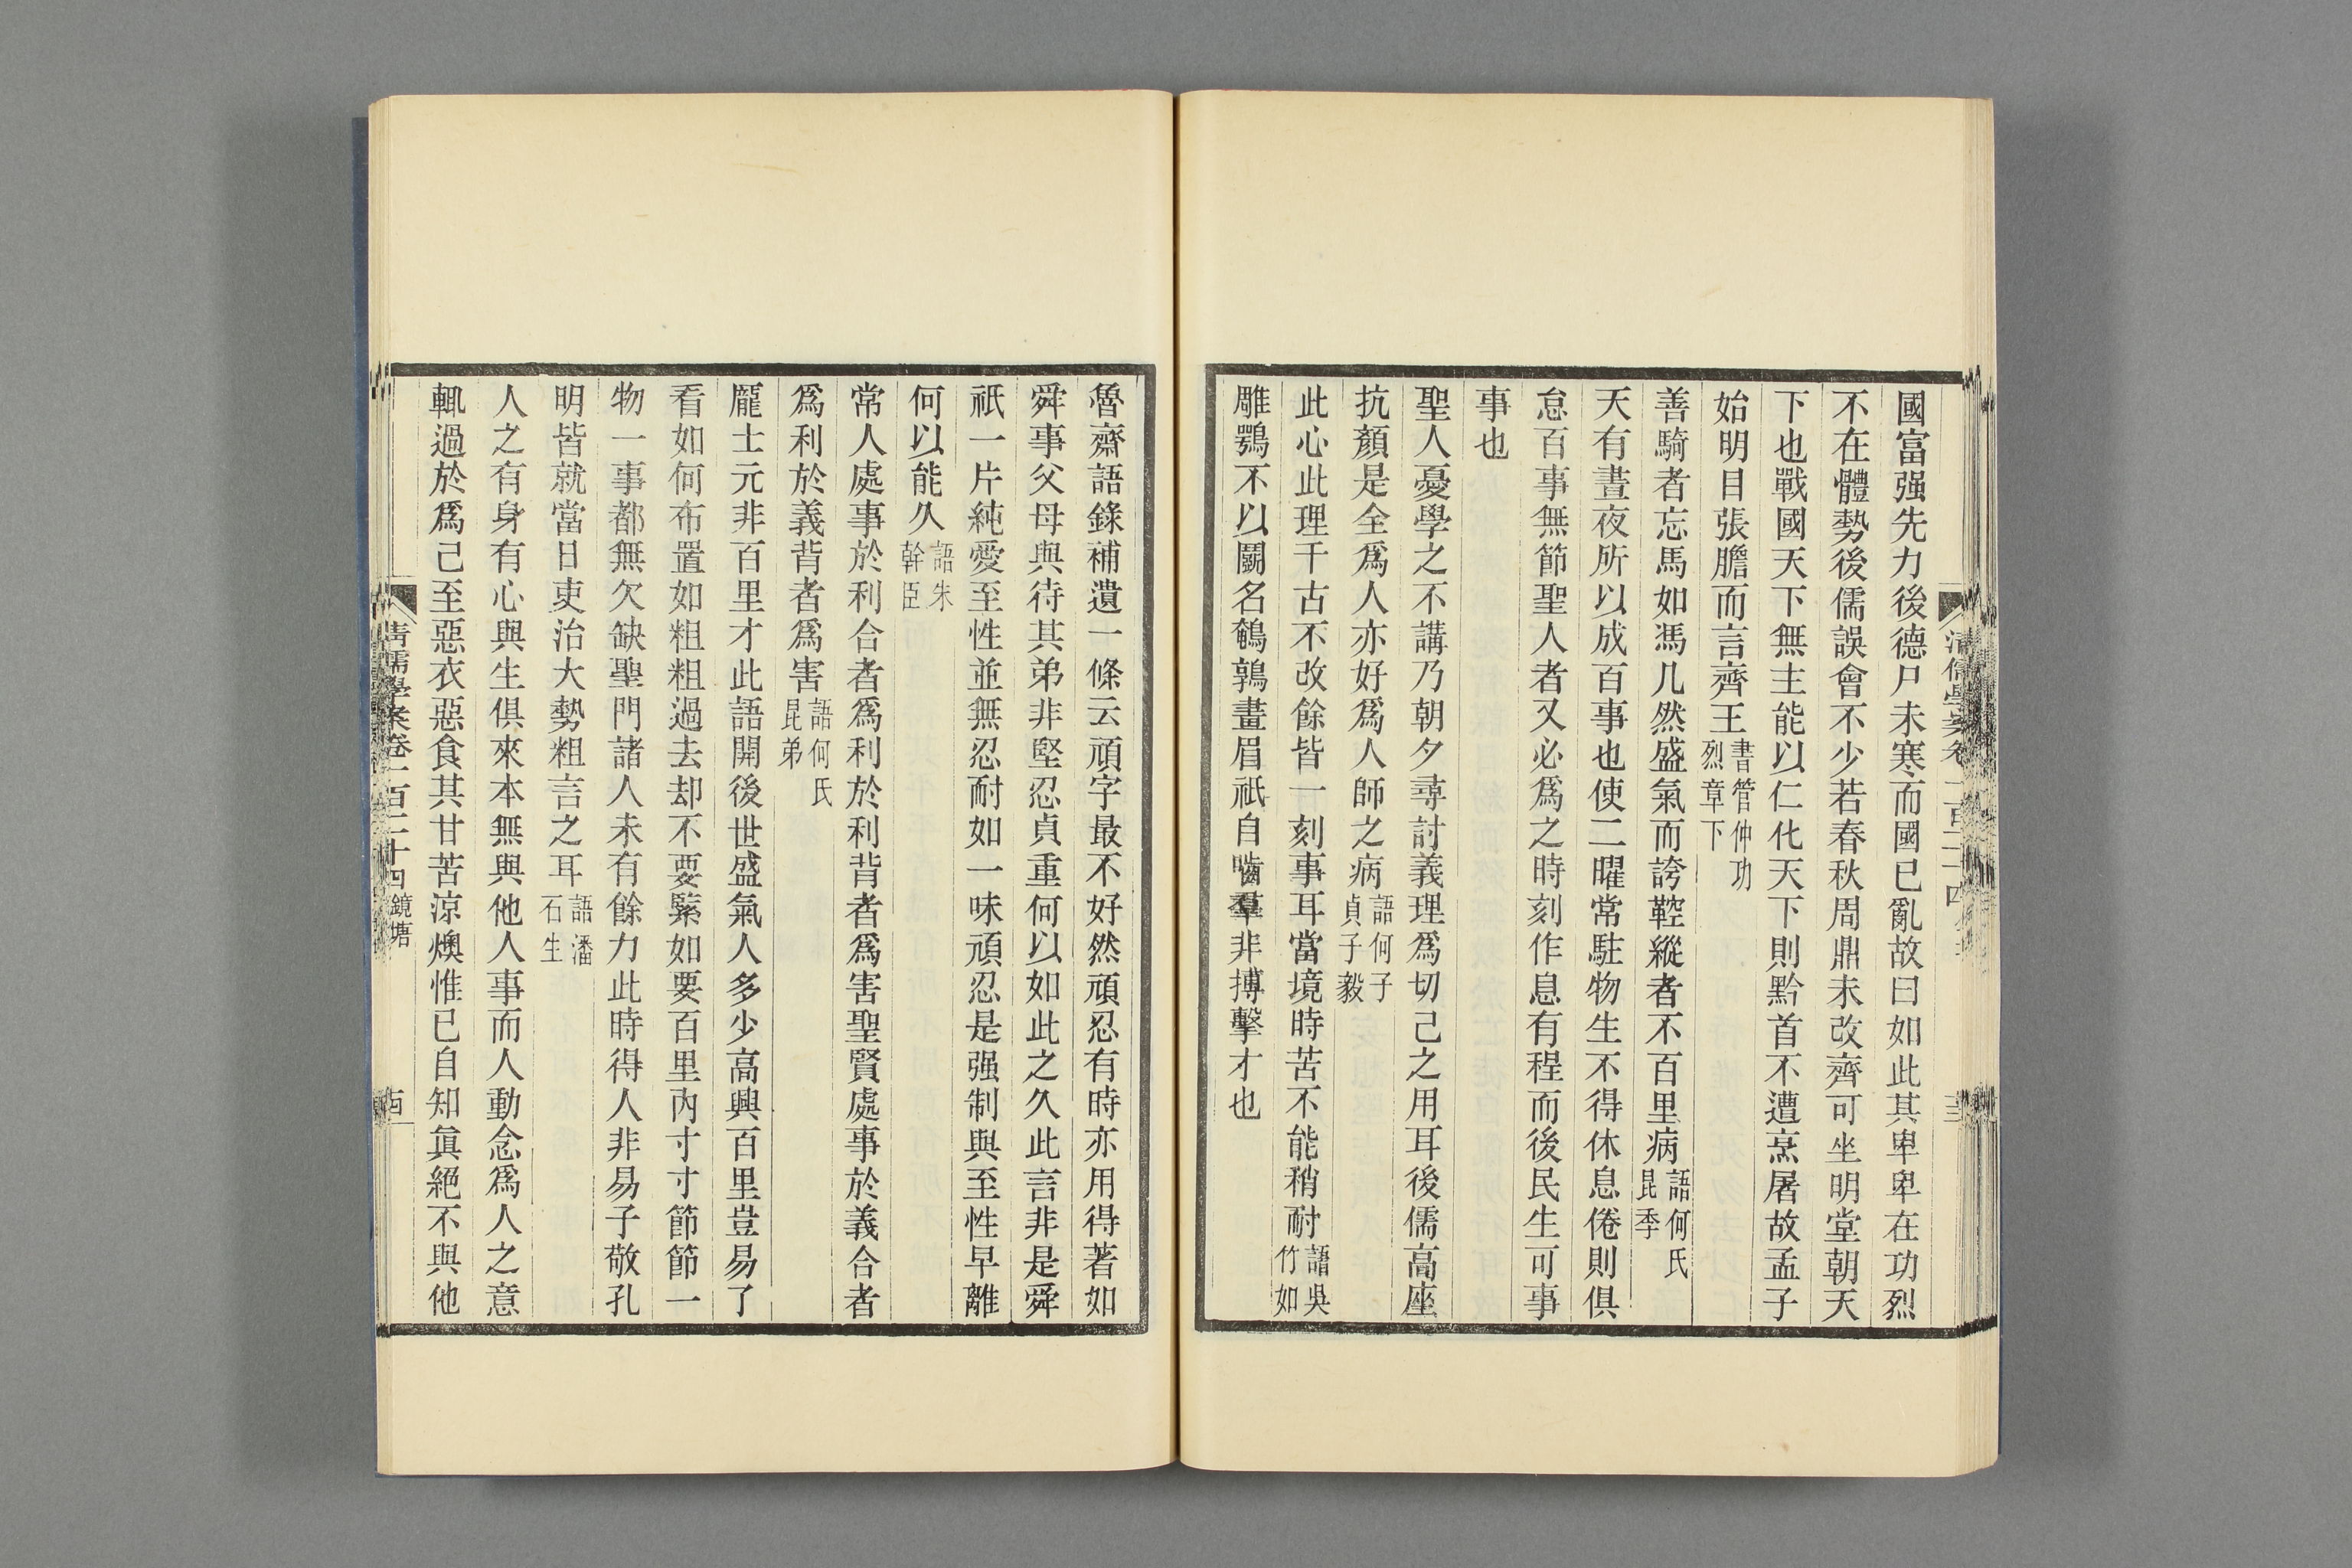 國富强先力後德尸未寒而國已亂故曰如此其卑卑在功烈
不在體勢後儒誤會不少若春秋周鼎未改齊可坐明堂朝天
下也戰國天下無主能以仁化天下則黔首不遭烹屠故孟子
始明目張膽而言齊王書管仲功烈章下
善騎者忘馬如馮几然盛氣而誇鞚縱者不百里病語何氏昆季
天有晝夜所以成百事也使二曜常駐物生不得休息倦則俱
怠百事無節聖人者又必爲之時刻作息有程而後民生可事
事也
聖人憂學之不講乃朝夕尋討義理爲切己之用耳後儒高座
抗顏是全爲人亦好爲人師之病語何子貞子毅
此心此理千古不改餘皆一刻事耳當境時苦不能稍耐語吳竹如
雕鶚不以鬭名鵪鶉畫眉祇自嚙羣非搏擊才也
魯齋語錄補遺一條云頑字最不好然頑忍有時亦用得著如
舜事父母與待其弟非堅忍貞重何以如此之久此言非是舜
祇一片純愛至性並無忍耐如一味頑忍是强制與至性早離
何以能久語朱幹臣
常人處事於利合者爲利於利背者爲害聖賢處事於義合者
爲利於義背者爲害語何氏昆弟
龐士元非百里才此語開後世盛氣人多少高興百里豈易了
看如何布置如粗粗過去却不要緊如要百里內寸寸節節一
物一事都無欠缺聖門諸人未有餘力此時得人非易子敬孔
明皆就當日吏治大勢粗言之耳語潘石生
人之有身有心與生俱來本無與他人事而人動念爲人之意
輒過於爲己至惡衣惡食其甘苦涼燠惟已自知眞絕不與他
清儒學案卷一百二十四 鏡塘